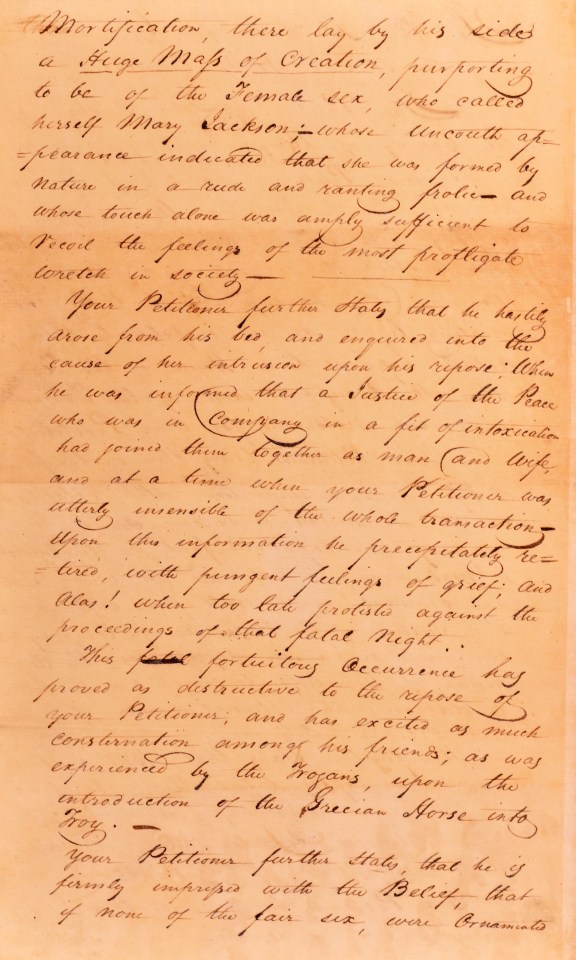 Mortification, there lay by his side
a Huge Mass of Creation, purporting
to be of the Female sex, who called
herself Mary Jackson;– whose uncouth ap=
=pearance indicated that she was formed by
Nature in a rude and ranting frolic– and
whose touch alone was amply sufficient to
recoil the feelings of the most profligate
wretch in society—
Your Petitioner further States that he hastily
arose from his bed, and enquired into the
cause of her intrusion upon his repose; When
he was informed that a Justice of the Peace
who was in Company in a fit of intoxication
had joined them together as man and Wife,
and at a time when your Petitioner was
utterly insensible of the whole transaction–
Upon this information he precipitately re=
=tired, with pungent feelings of grief; and
Alas! when too late protested against the
proceedings of that fatal Night..
This fatal fortuitous Occurrence has
proved as destructive to the repose of
your Petitioner; and has excited as much
consternation among his friends; as was
experienced by the Trojans, upon the
introduction of the Grecian Horse into
Troy. —
Your Petitioner further States, that he is
firmly impressed with the Belief, that
if none of the fair sex, were Ornamented